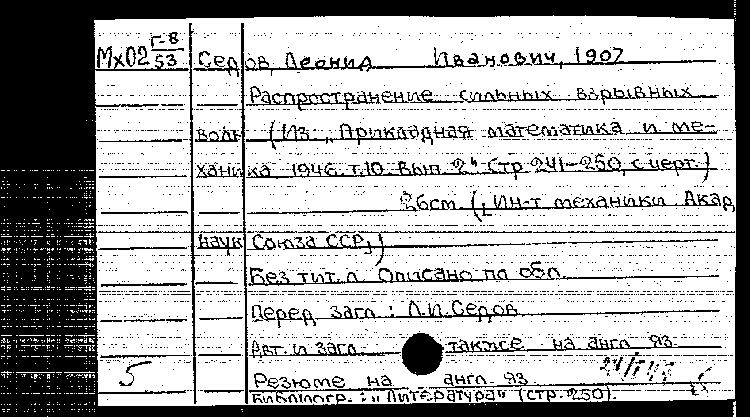 Мх02 Г-8/53 Седов, Леонид Иванович, 1907
Распространение сильных взрывных
волн (Из „Прикладная математика и ме-
ханика 1946 т.10. Вып 2“ Стр 241-250, с черт.)
26см ([Ин-т механики Акад
наук Союза ССР])
Без тит. л. Описано по обл.
Перед загл : Л.И.Седов
Авт. и загл также на англ яз.
5 Резюме на англ. яз
Библиогр. : „Литература“ (стр.250).